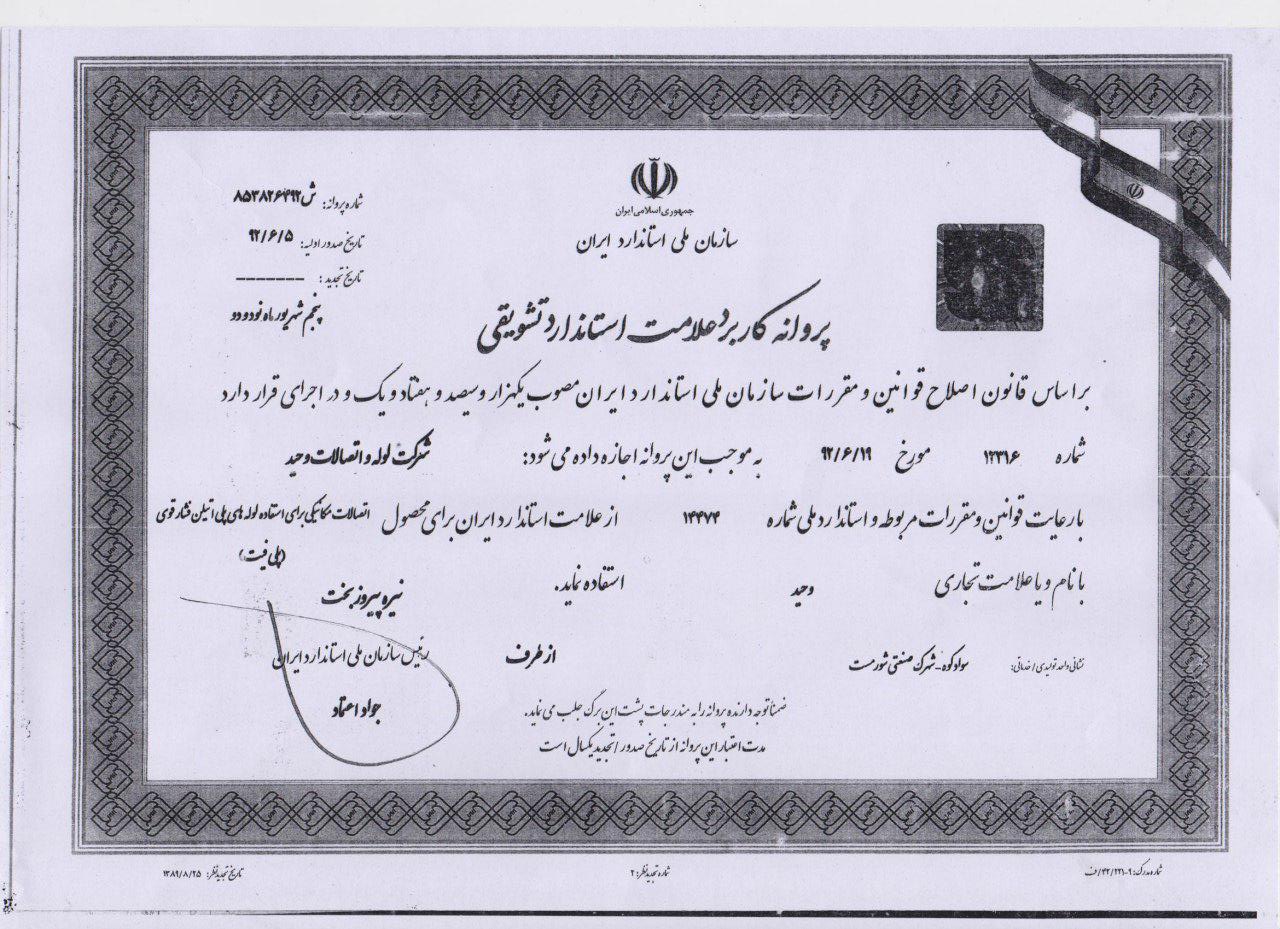 جمهوری اسلامی ایران
سازمان ملی استاندارد ایران
شماره پروانه: ش ۸۵۳۸۲۶۴۹۲
تاریخ صدور اولیه: ۹۲/۶/۵
تاریخ تجدید: -------
پنجم شهریور ماه نود و دو
پروانه کاربرد علامت استاندارد تشویقی
براساس قانون اصلاح قوانین و مقررات سازمان ملی استاندارد ایران مصوب یکهزار و سیصد و هفتاد و یک و در اجرای قرارداد
شماره ۱۲۳۱۶ مورخ ۹۲/۶/۱۹ به موجب این پروانه اجازه داده می شود: شرکت لوله و اتصالات وحید
با رعایت قوانین و مقررات مربوطه و استاندارد ملی شماره ۱۴۴۷۴ از علامت استاندارد ایران برای محصول اتصالات مکانیکی برای استفاده لوله های پلی اتیلن فشار قوی
(پلی فیت)
با نام و یا علامت تجاری وحید استفاده نماید.
نیره پیروزبخت
رئیس سازمان ملی استاندارد ایران
از طرف
جواد اعتماد
نشانی واحد تولیدی/خدماتی: سوادکوه - شهرک صنعتی شورمست
ضمناً توجه دارنده پروانه را به مندرجات پشت این برگ جلب می نماید.
مدت اعتبار این پروانه از تاریخ صدور/تجدید یکسال است
شماره مدرک: ف/۴۲/۲۲۱-۹
شماره تجدیدنظر: ۲
تاریخ تجدیدنظر: ۱۳۸۹/۸/۲۵